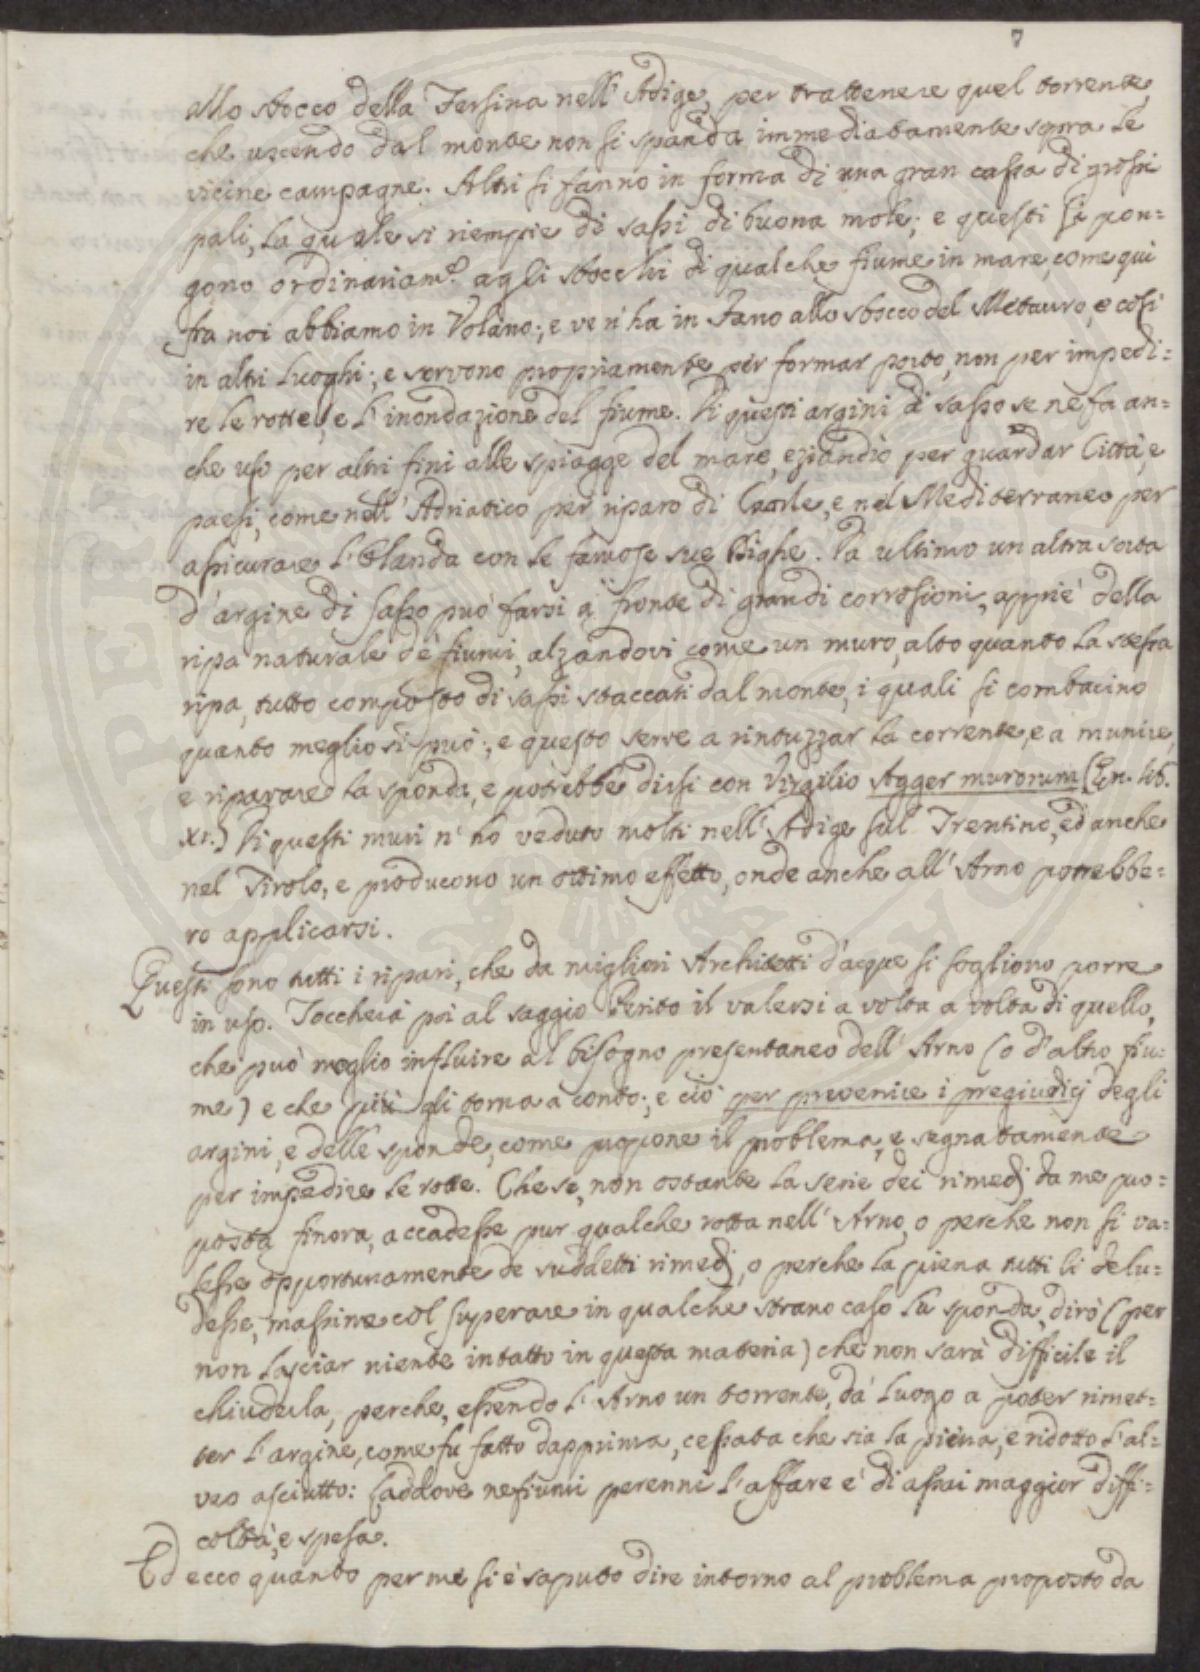 7
allo sbocco della Fersina nell' Adige, per trattenere quel torrente,
che uscendo dal monte non si spanda immediatamente sopra le
vicine campagne. Altri si fanno in forma di una gran cassa di grossi
pali, la quale si riempie di sassi di buona mole; e questi si pon=
gono ordinariam.e agli sbocchi di qualche fiume in mare, come qui
fra noi abbiamo in Volano; e ve n'ha in Fano allo sbocco del Metauro, e così
in altri luoghi; e servono propriamente per formar porto, non per impedi=
re le rotte, e l'inondazione del fiume. Di questi argini di sasso se ne fa an=
che uso per altri fini alle spiagge del mare, eziandìo per guardar Città, e
paesi, come nell' Adriatico per riparo di Caorle, e nel Mediterraneo per
assicurare l'Olanda con le famose sue Dighe. Da ultimo un altra sorta
d'argine di sasso può farsi a fronte di grandi corrosioni, appiè della
ripa naturale de' fiumi, alzandovi come un muro, alto quanto la stessa
ripa, tutto composto di sassi staccati dal monte, i quali si combacino
quanto meglio si può; e questo serve a rintuzzar la corrente, e a munire,
e riparare la sponda, e potrebbe dirsi con Virgilio Agger murorum (Æn. lib.
XI.) Di questi muri n'ho veduto molti nell' Adige sul Trentino, ed anche
nel Tirolo, e producono un ottimo effetto, onde anche all' Arno potrebbe=
ro applicarsi.
Questi sono tutti i ripari, che da migliori Architetti d'acque si sogliono porre
in uso. Toccherà poi al saggio Perito il valersi a volta a volta di quello,
che può meglio influire al bisogno presentaneo dell' Arno (o d'altro fiu=
me) e che più gli torna a conto; e ciò per prevenire i pregiudicj degli
argini, e delle sponde, come propone il problema, e segnatamente
per impedire le rotte. Che se, non ostante la serie dei rimedj da me pro=
posta finora, accadesse pur qualche rotta nell' Arno, o perche non si va=
lesse opportunamente de suddetti rimedj, o perche la piena tutti li delu=
desse, massime col superare in qualche strano caso la sponda, dirò (per
non lasciar niente intatto in questa materia) che non sarà difficile il
chiuderla, perche, essendo l'Arno un torrente, dà luogo a poter rimet=
ter l'argine, come fu fatto dapprima, cessata che sia la piena, e ridotto l'al=
veo asciutto: Laddove ne fiumi perenni l'affare è di assai maggior diffi=
coltà, e spesa.
Ed ecco quanto per me si è saputo dire intorno al problema proposto da